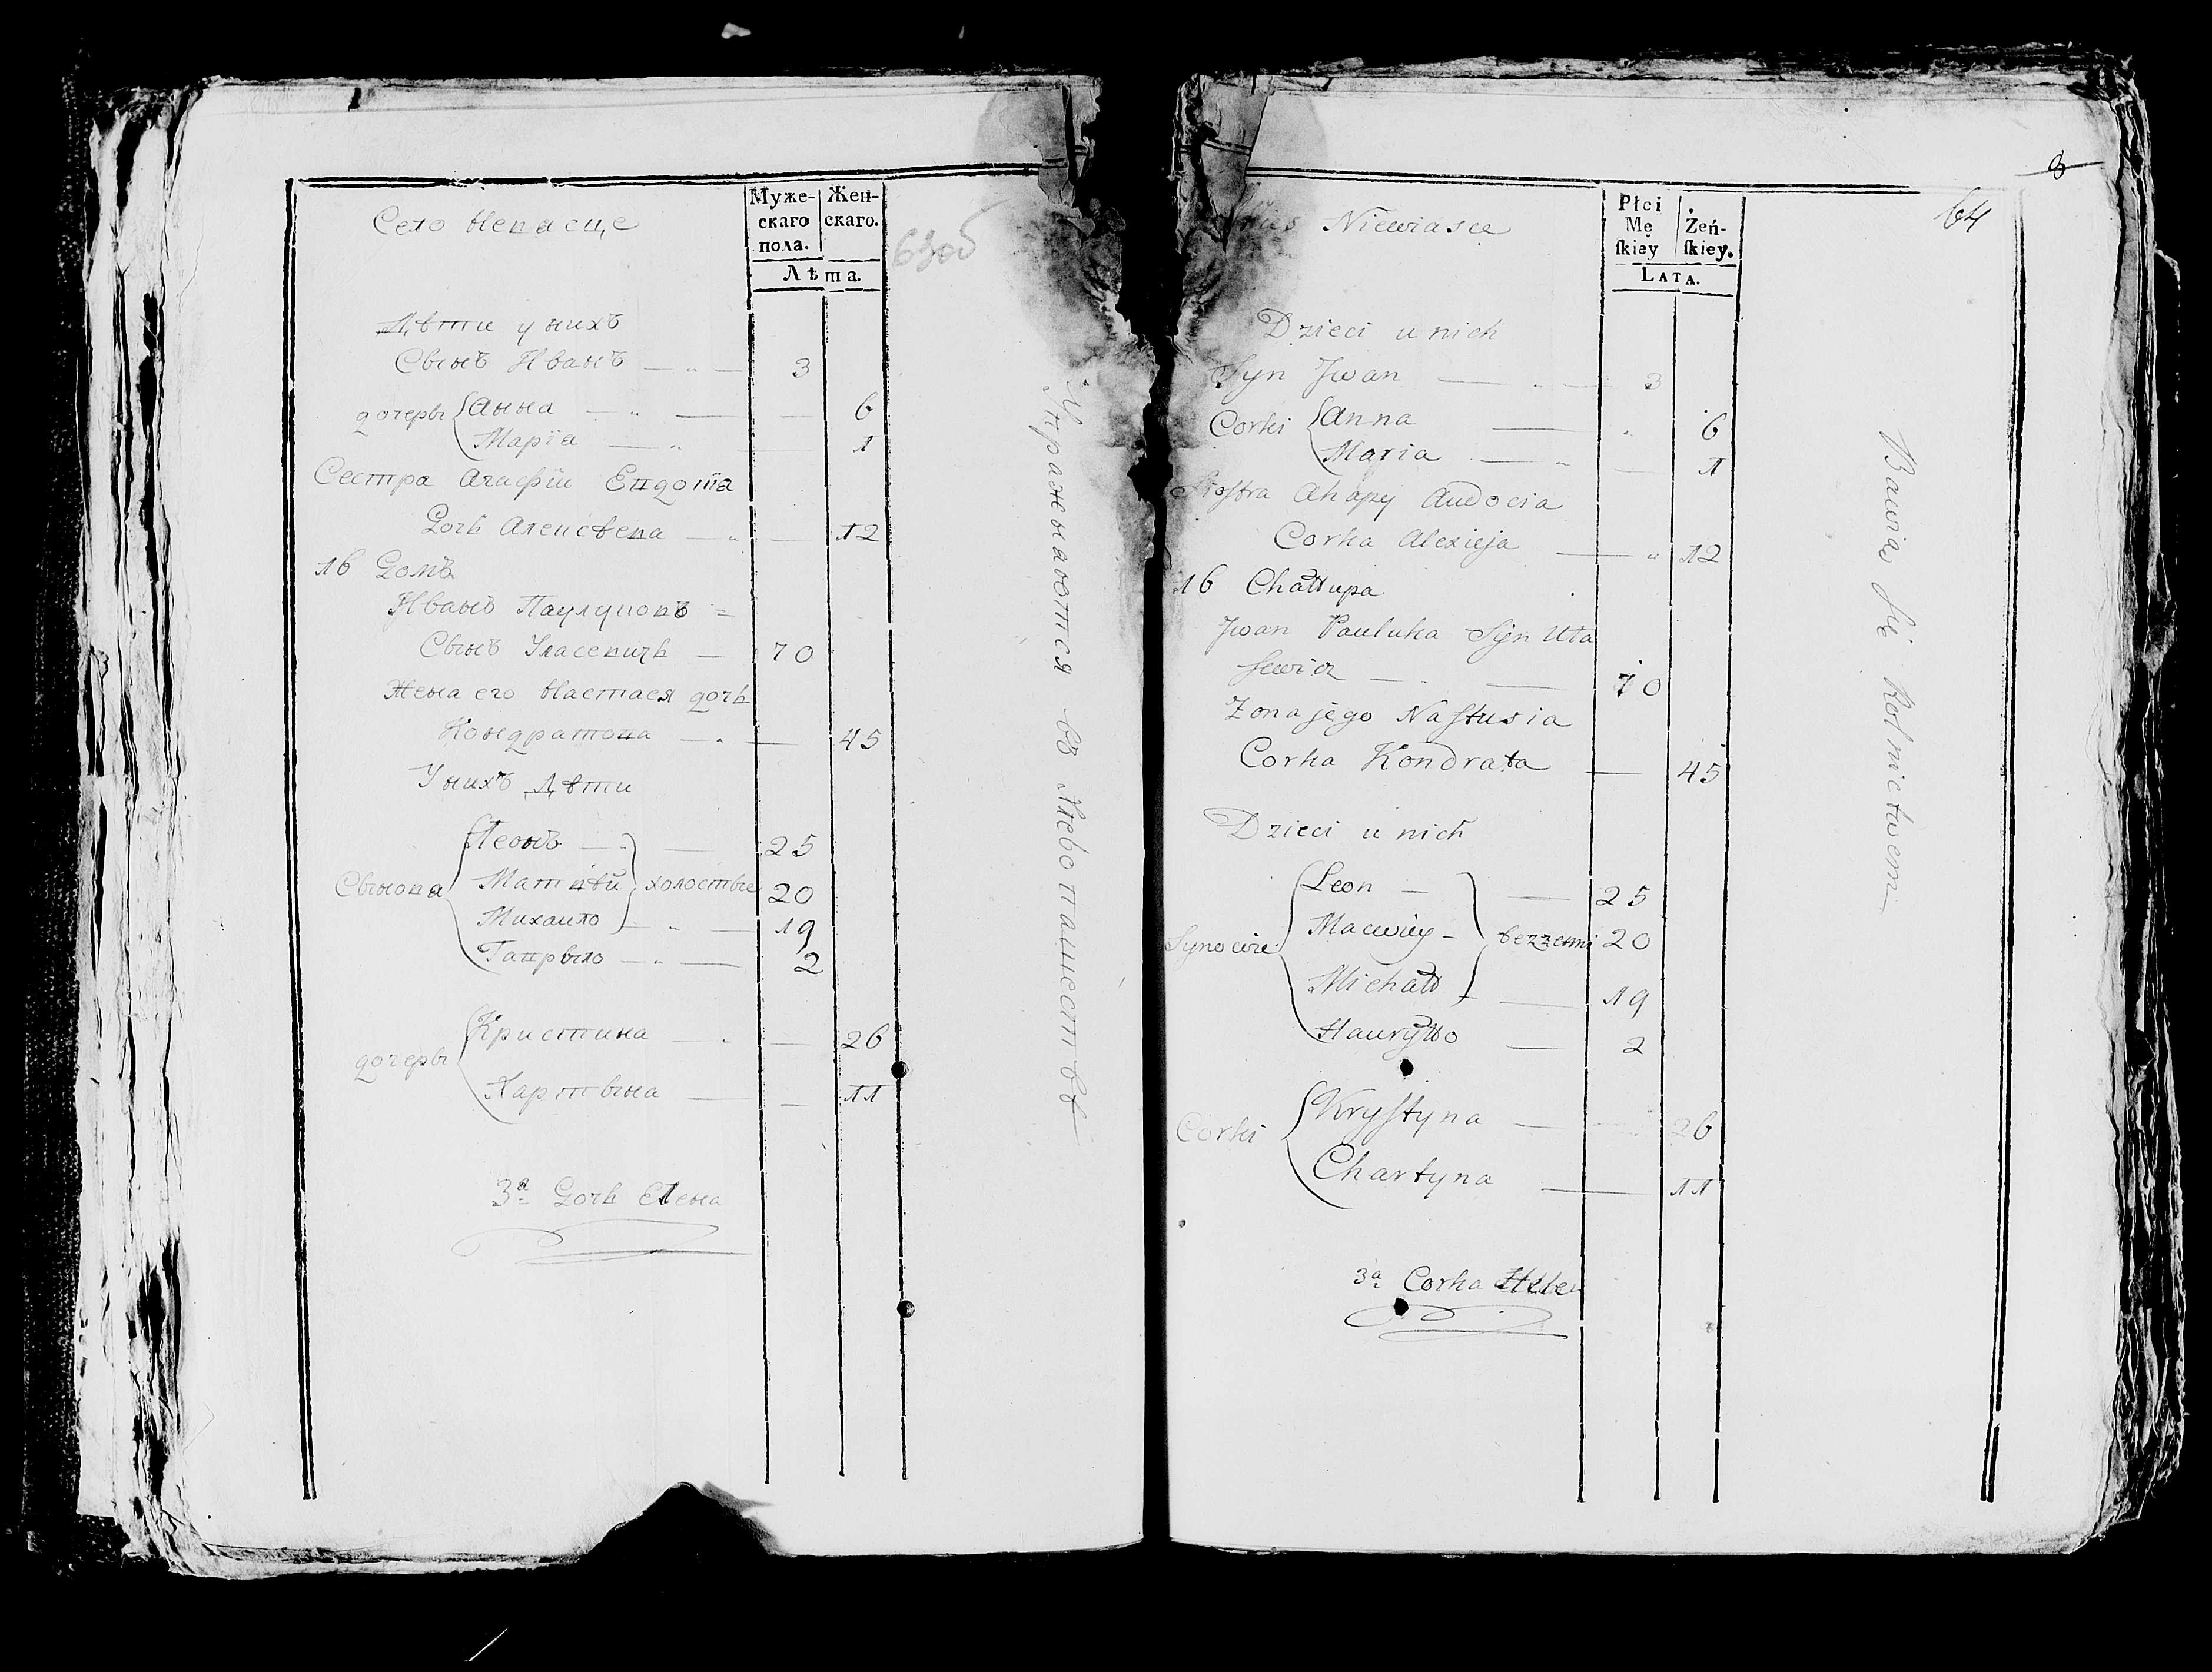 Село Невасце
Муже-
скаго
пола.
Жен-
скаго.
Лѣта.
63об
Дѣти у нихъ
Сынъ Иванъ — „ — 3
дочеры Анна — „ — 6
Марїа — „ — 1
Сестра Агафїи Евдотїа
Дочь Алексѣева — „ — 12
16 Домъ
Иванъ Паулуковъ =
Сынъ Уласевичь — 70
Жена его Настася дочь
Кондратова — „ — 45
У нихъ Дѣти
Сынова
Леонъ — „ — 25
Матвѣй холостые 20
Михаило — „ — 19
Гаврыло — „ — 2
дочеры
Кристина — „ — 26
Хартына — — 11
3а Дочь Елена
Упражнаются въ Хлебопашествѣ
8
64
Niewiasce
Płci
Mę
ſkiey
Żeń-
ſkiey.
LATA.
Dzieci u nich
Syn Jwan — „ — 3
Corki Anna — „ 6
Maria — „ — 1
Siostra Ahapy Audocia
Corka Alexieja — „ 12
16 Chałłupa
Jwan Pauluka Syn Uła
sewicz — „ — 70
Zona jego Nastusia
Corka Kondrata — 45
Dzieci u nich
Synowie
Leon — — 25
Macwiey — bezzenni 20
Michałł — 19
Hauryłło — 2
Corki
Krystyna — 26
Chartyna — 11
3a Corka Helen
Bawią się Rolnictwem